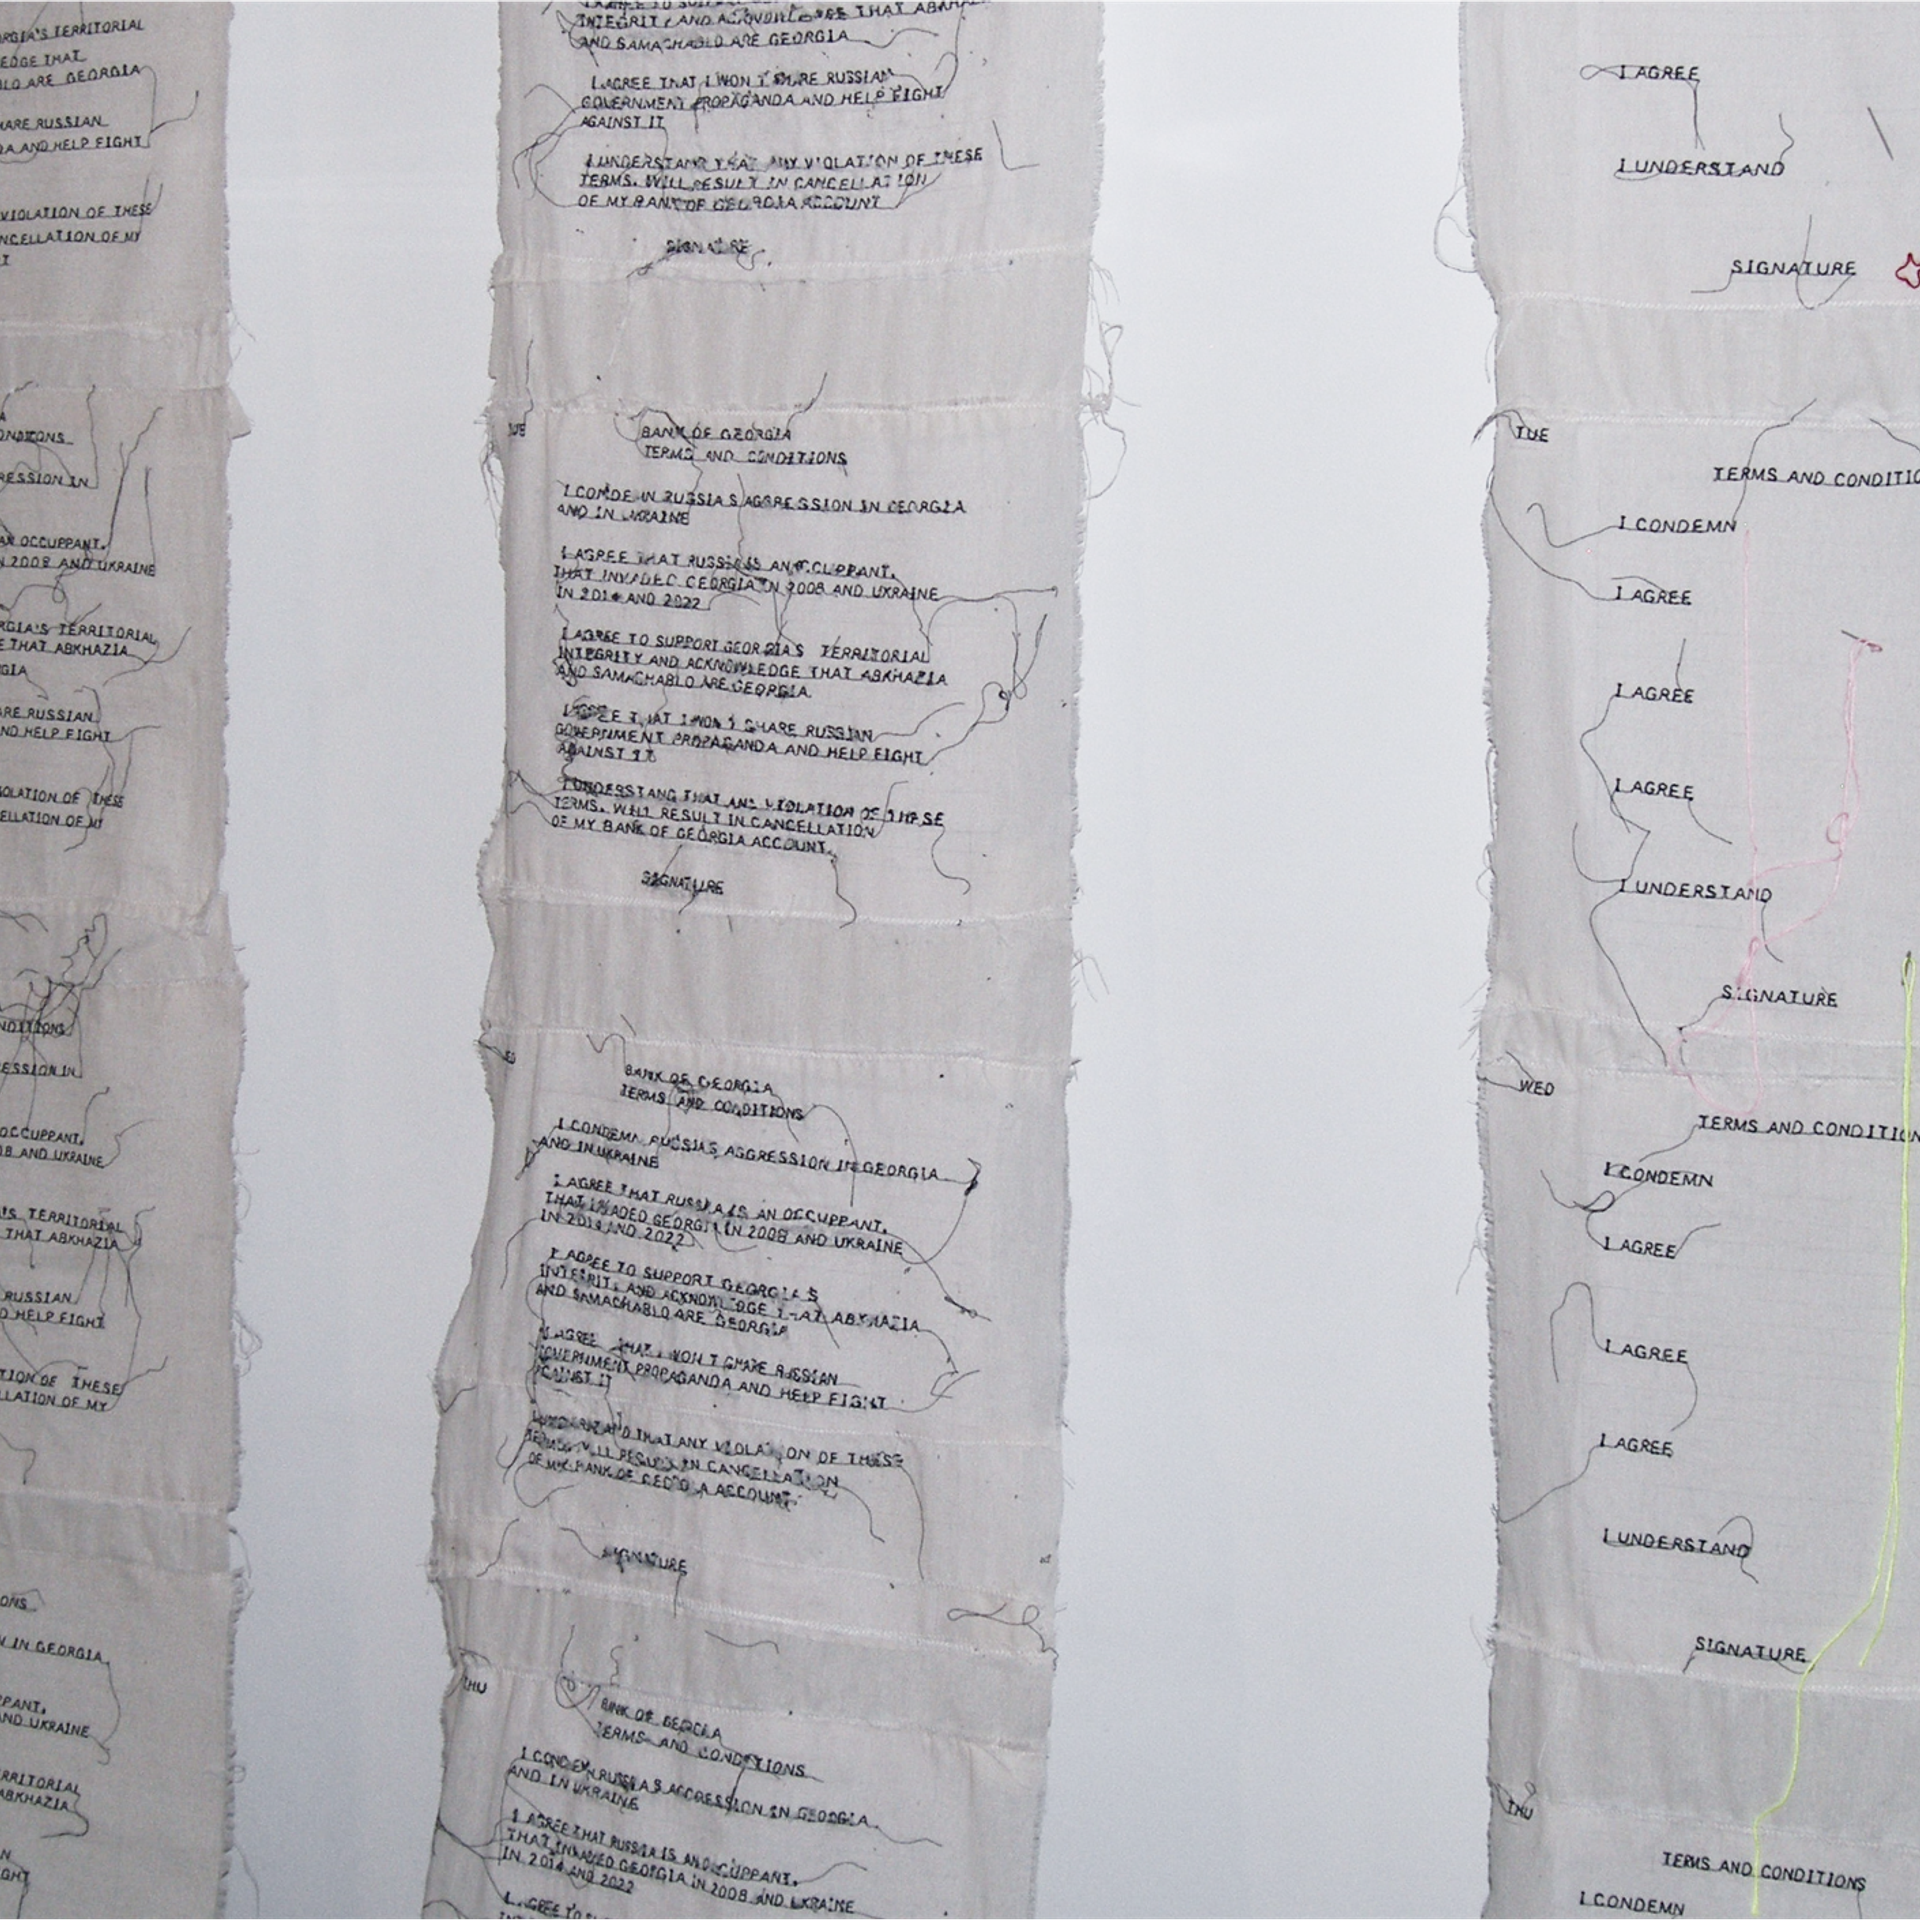 RGIA'S TERRITORIAL
EDGE THAT
LO ARE GEORGIA
ARE RUSSIAN
DA AND HELP FIGHT
VIOLATION OF THESE
NCELLATION OF MY
T
A
ONDITIONS
RESSION IN
AN OCCUPPANT,
N 2008 AND UKRAINE
RGIA'S TERRITORIAL
E THAT ABKHAZIA
RGIA
ARE RUSSIAN
ND HELP FIGHT
OLATION OF THESE
ELLATION OF MY
NDITIONS
ESSION IN
OCCUPPANT,
08 AND UKRAINE
'S TERRITORIAL
THAT ABKHAZIA
RUSSIAN
D HELP FIGHT
TION OF THESE
LLATION OF MY
ONS
N IN GEORGIA
PPANT,
AND UKRAINE
RRITORIAL
ABKHAZIA
N
GHT
INTEGRITY AND ACKNOWLEDGE THAT
AND SAMACHABLO ARE GEORGIA
I AGREE THAT I WON'T SHARE RUSSIAN
GOVERNMENT PROPAGANDA AND HELP FIGHT
AGAINST IT
I UNDERSTAND THAT ANY VIOLATION OF THESE
TERMS, WILL RESULT IN CANCELLATION
OF MY BANK OF GEORGIA ACCOUNT
SIGNATURE
TUE
BANK OF GEORGIA
TERMS AND CONDITIONS
I CONDEMN RUSSIA'S AGGRESSION IN GEORGIA
AND IN UKRAINE
I AGREE THAT RUSSIA IS AN OCCUPPANT,
THAT INVADED GEORGIA IN 2008 AND UKRAINE
IN 2014 AND 2022
I AGREE TO SUPPORT GEORGIA'S TERRITORIAL
INTEGRITY AND ACKNOWLEDGE THAT ABKHAZIA
AND SAMACHABLO ARE GEORGIA
I AGREE THAT I WON'T SHARE RUSSIAN
GOVERNMENT PROPAGANDA AND HELP FIGHT
AGAINST IT
I UNDERSTAND THAT ANY VIOLATION OF THESE
TERMS, WILL RESULT IN CANCELLATION
OF MY BANK OF GEORGIA ACCOUNT.
SIGNATURE
ED
BANK OF GEORGIA
TERMS AND CONDITIONS
I CONDEMN RUSSIA'S AGGRESSION IN GEORGIA
AND IN UKRAINE
I AGREE THAT RUSSIA IS AN OCCUPPANT,
THAT INVADED GEORGIA IN 2008 AND UKRAINE
IN 2014 AND 2022
I AGREE TO SUPPORT GEORGIA'S
INTEGRITY AND ACKNOWLEDGE THAT ABKHAZIA
AND SAMACHABLO ARE GEORGIA
I AGREE THAT I WON'T SHARE RUSSIAN
GOVERNMENT PROPAGANDA AND HELP FIGHT
AGAINST IT
I UNDERSTAND THAT ANY VIOLATION OF THESE
TERMS, WILL RESULT IN CANCELLATION
OF MY BANK OF GEORGIA ACCOUNT
SIGNATURE
THU
BANK OF GEORGIA
TERMS AND CONDITIONS
I CONDEMN RUSSIA'S AGGRESSION IN GEORGIA
AND IN UKRAINE
I AGREE THAT RUSSIA IS AN OCCUPPANT,
THAT INVADED GEORGIA IN 2008 AND UKRAINE
IN 2014 AND 2022
I AGREE TO
I AGREE
I UNDERSTAND
SIGNATURE
TUE
TERMS AND CONDITIO
I CONDEMN
I AGREE
I AGREE
I AGREE
I UNDERSTAND
SIGNATURE
WED
TERMS AND CONDITION
I CONDEMN
I AGREE
I AGREE
I AGREE
I UNDERSTAND
SIGNATURE
THU
TERMS AND CONDITIONS
I CONDEMN